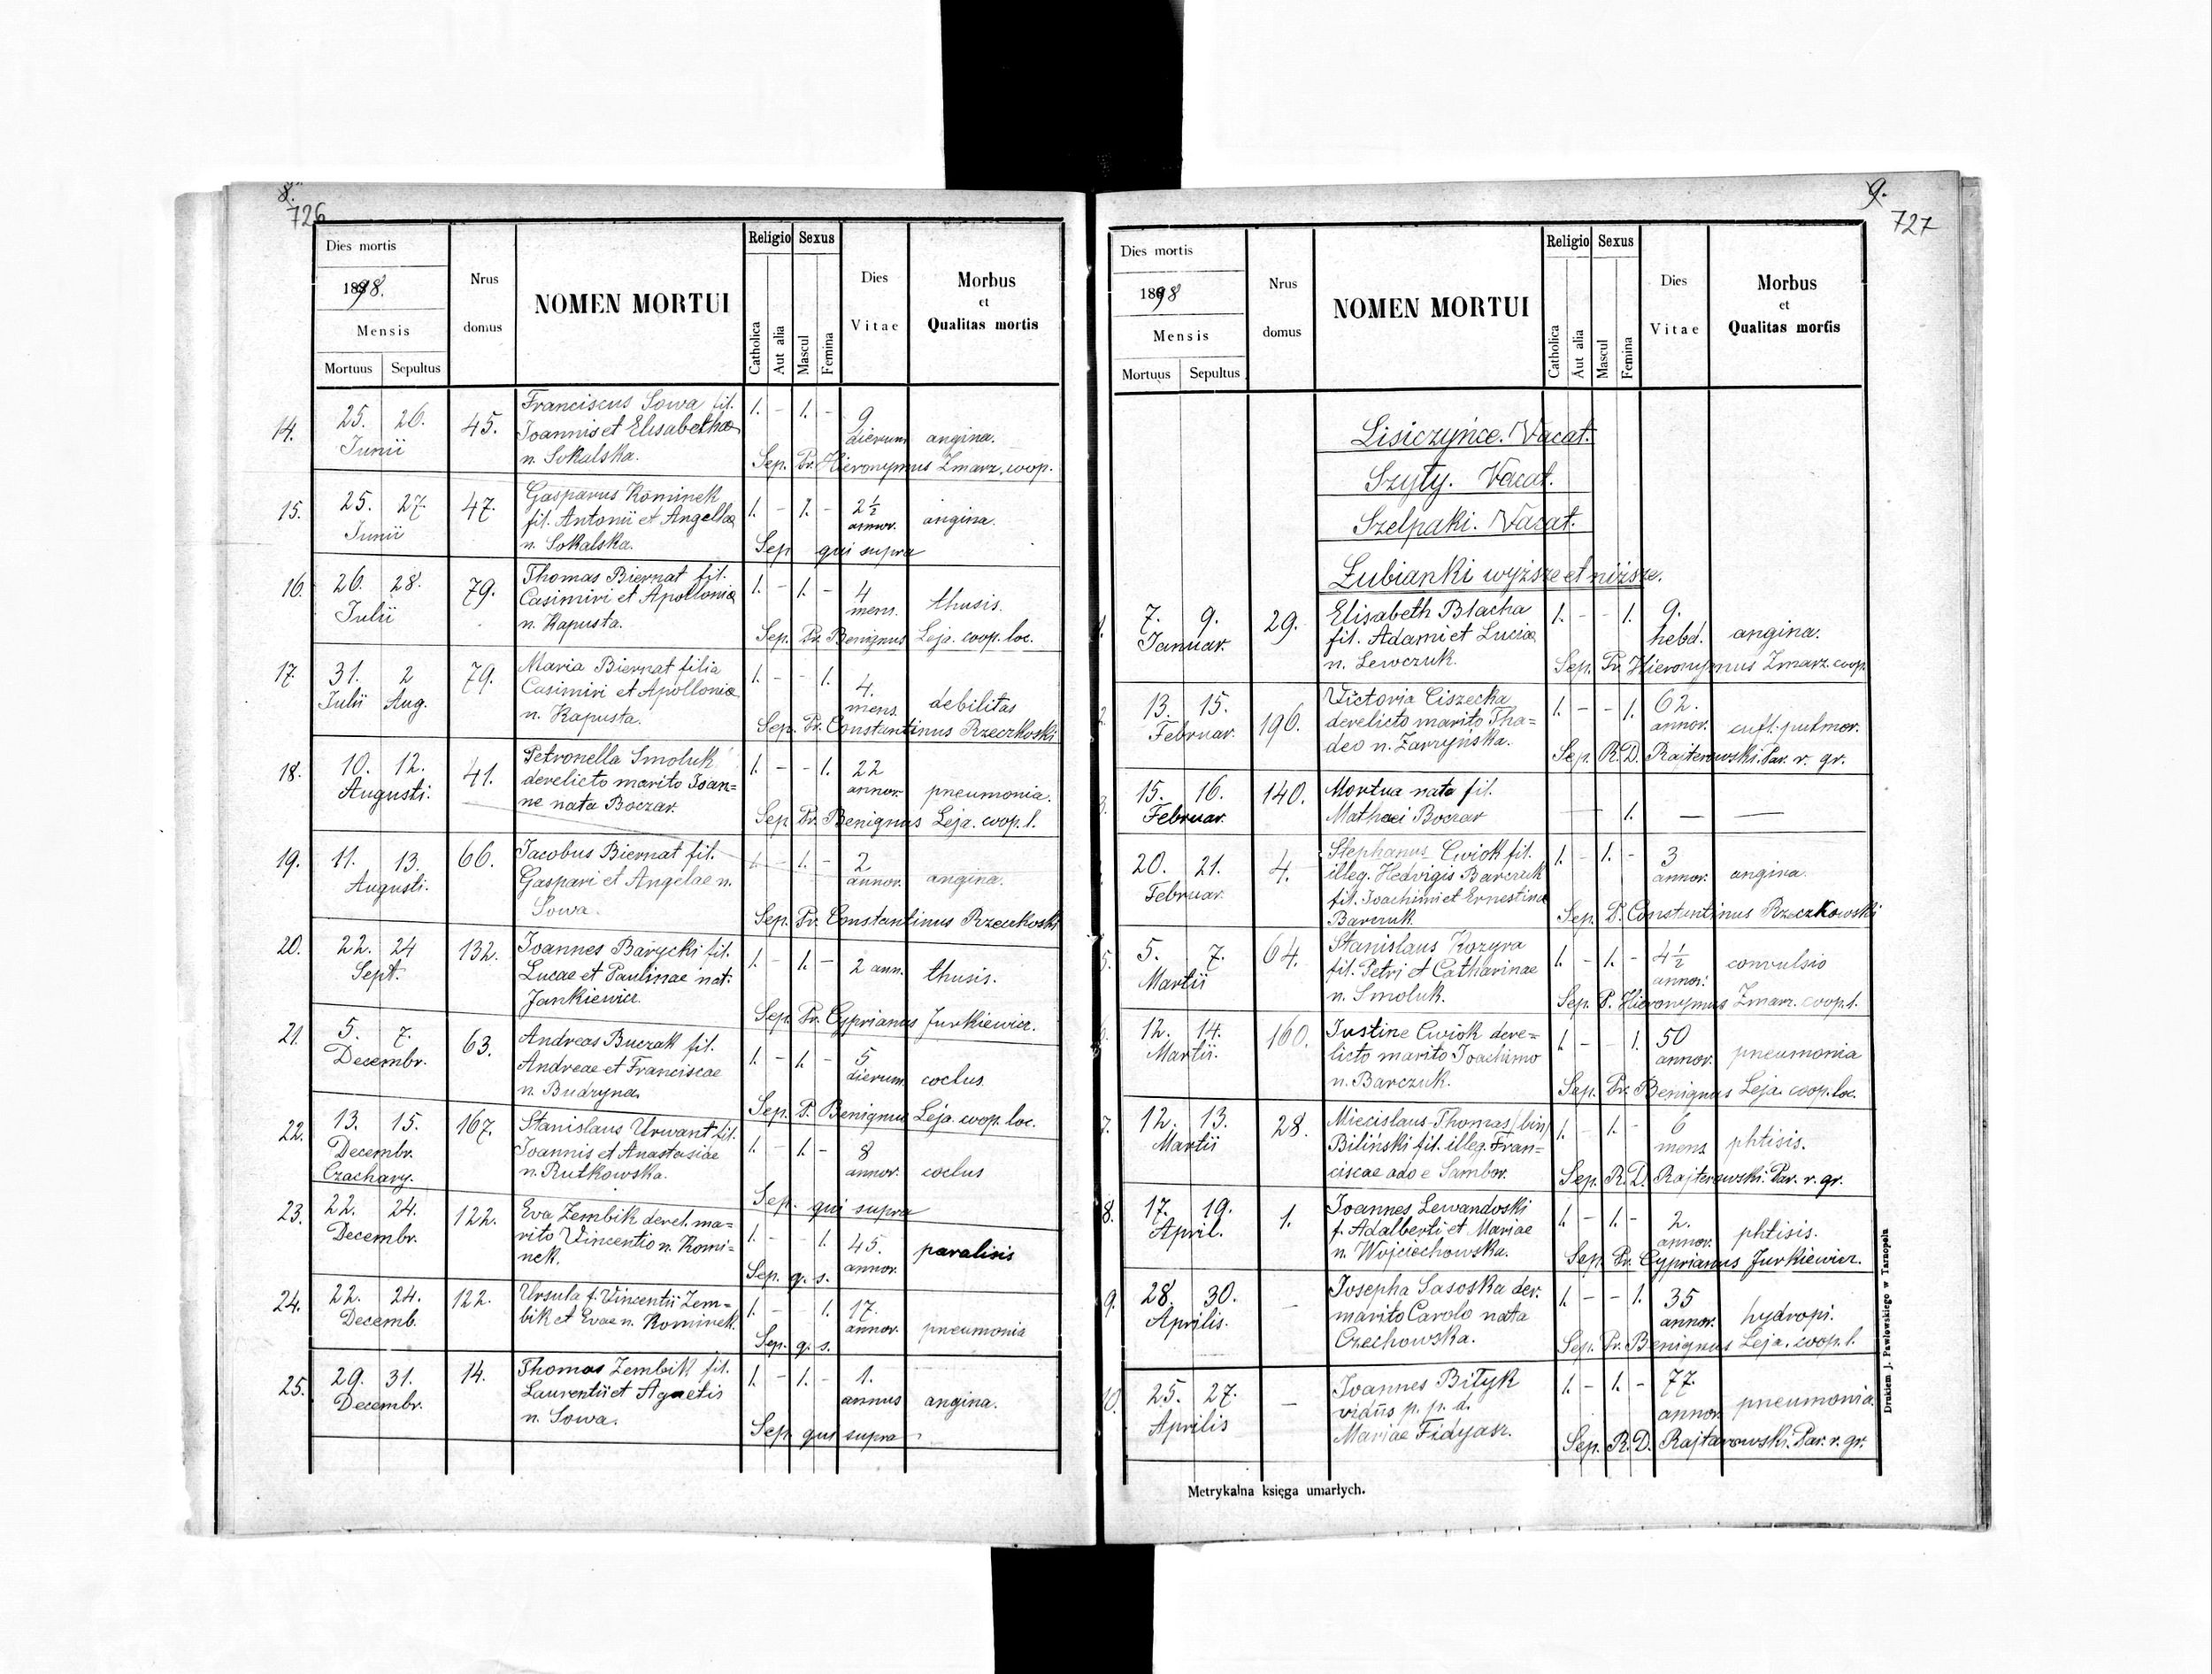 8.
726
Dies mortis
1898.
Mensis
Mortuus Sepultus
Nrus domus
NOMEN MORTUI
Religio
Catholica
Aut alia
Sexus
Mascul
Femina
Dies Vitae
Morbus
et
Qualitas mortis
14. 25. 26. 45. Franciscus Sowa fil. 1. - 1. - 9
Junii Joannis et Elisabethae dierum angina.
n. Sokalska. Sep. Pr. Hieronymus Zmarz. coop.
15. 25. 27. 47. Gasparus Kominek 1. - 1. - 2½
Junii fil. Antonii et Angellae annor. angina.
n. Sokalska. Sep qui supra
16. 26. 28. 79. Thomas Biernat fil. 1. - 1. - 4
Julii Casimiri et Apolloniae mens. thusis.
n. Kapusta. Sep. Pr. Benignus Leja. coop. loc.
17. 31. 2 79. Maria Biernat filia 1. - - 1. 4.
Julii Aug. Casimiri et Apolloniae mens. debilitas
n. Kapusta. Sep. Pr. Constantinus Rzeczkoski
18. 10. 12. 41. Petronella Smoluk 1. - - 1. 22
Augusti. derelicto marito Joan= annor. pneumonia.
ne nata Boczar. Sep Pr. Benignus Leja. coop. l.
19. 11. 13. 66. Jacobus Biernat fil. 1. - 1. - 2
Augusti. Gaspari et Angelae n. annor. angina.
Sowa. Sep. Pr. Constantinus Rzeczkoski
20. 22. 24 132. Joannes Barycki fil. 1. - 1. - 2 ann. thusis.
Sept. Lucae et Paulinae nat.
Jankiewicz. Sep Pr. Cyprianus Jurkiewicz.
21. 5. 7. 63. Andreas Buczak fil. 1. - 1. - 5
Decembr. Andreae et Franciscae dierum coclus.
n. Budzyna. Sep. P. Benignus Leja. coop. loc.
22. 13. 15. 167. Stanislaus Urwant fil. 1. - 1. - 8
Decembr. Joannis et Anastasiae annor. coclus
Czachary. n. Rutkowska. Sep. qui supra
23. 22. 24. 122. Eva Zembik derel. ma= 1. - 1. 45.
Decembr. rito Vincentio n. Komi= annor. paralisis
nek. Sep. q. s.
24. 22. 24. 122. Ursula f. Vincentii Zem= 1. - 1. 17.
Decemb. bik et Evae n. Kominek. annor. pneumonia
Sep. q. s.
25. 29. 31. 14. Thomas Zembik fil. 1. - 1. - 1.
Decembr. Laurentii et Agnetis annus angina.
n. Sowa. Sep. qui supra
9.
727
Dies mortis
1898
Mensis
Mortuus Sepultus
Nrus domus
NOMEN MORTUI
Religio
Catholica
Aut alia
Sexus
Mascul
Femina
Dies Vitae
Morbus
et
Qualitas mortis
Lisiczyńce. Vacat.
Szyły. Vacat.
Szelpaki. Vacat.
Łubianki wyższe et niższe.
1. 7. 9. 29. Elisabeth Blacha 1. - - 1. 9.
Januar. fil. Adami et Luciae hebd. angina.
n. Lewczuk. Sep. Pr. Hieronymus Zmarz. coop
2. 13. 15. 196. Victoria Ciszecka 1. - - 1. 62.
Februar. derelicto marito Tha= annor.
deo n. Zarzyńska. Sep R. D. Rajterowski. Par. r. gr.
3. 15. 16. 140. Mortua nata fil. 1. — —
Februar. Mathaei Boczar
20. 21. 4. Stephanus Cwiok fil. 1. - 1. - 3
Februar. illeg. Hedvigis Barczuk annor. angina.
fil. Joachimi et Ernestinae
Barczuk Sep. P. Constantinus Rzeczkowski
5. 5. 7. 64. Stanislaus Kozyra 1. - 1. - 4½ convulsio
Martii fil. Petri et Catharinae annor.
n. Smoluk. Sep. P. Hieronymus Zmarz. coop. l.
12. 14. 160. Justine Cwiok dere= 1. - 1. 50
Martii. licto marito Joachimo annor. pneumonia
n. Barczuk. Sep. Pr. Benignus Leja. coop. loc.
7. 12. 13. 28. Miecislaus-Thomas (bin) 1. - 1. - 6
Martii Biliński fil. illeg. Fran= mens phtisis.
ciscae ado e Sambor. Sep. R. D. Rajterowski. Par. r. gr.
8. 17. 19. 1. Joannes Lewandoski 1. - 1. - 2.
April. f. Adalberti et Mariae annor. phtisis.
n. Wojciechowska. Sep. Pr. Cyprianus Jurkiewicz.
9. 28. 30. - Josepha Sasoska der. 1. - - 1. 35
Aprilis. marito Carolo nata annor. hydropi.
Czechowska. Sep. Pr. Benignus Leja. coop. l.
10. 25. 27. - Joannes Bityk 1. - 1. - 77.
Aprilis viduus p. p. d. annor. pneumonia.
Mariae Fidyasz. Sep. R. D. Rajtarowski. Par. r. gr.
Metrykalna księga umarłych.
Drukiem J. Pawłowskiego w Tarnopolu